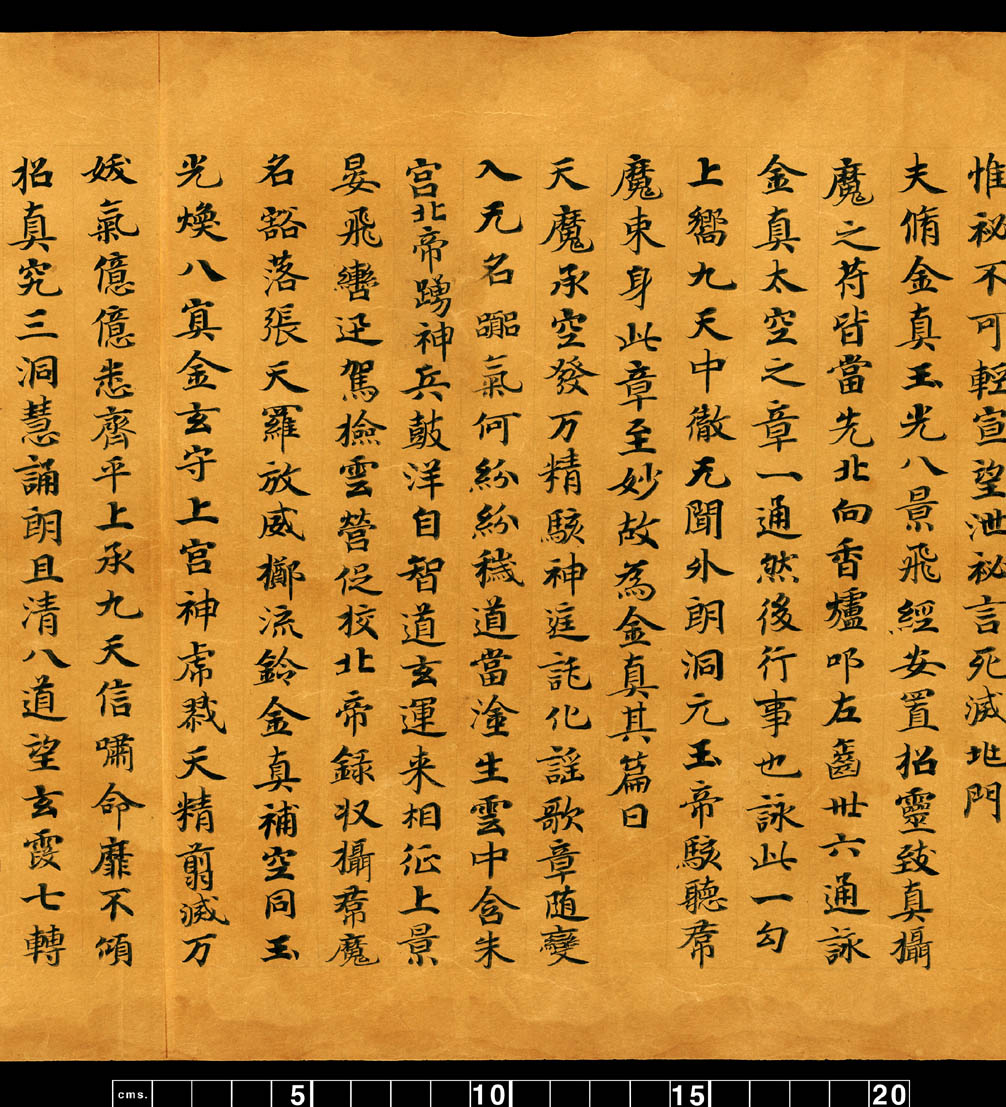 惟祕不可輕宣望泄祕言死滅地門
夫脩金真玉光八景飛經安置招靈致真攝
魔之苻皆當先北向香爐叩左齒卅六通詠
金真太空之章一通然後行事也詠此一句
上嚮九天中徹无聞外朗洞元玉帝駭聽群
魔束身此章至妙故為金真其篇曰
天魔承空發万精駭神庭託化謡歌章随變
入无名躡氣何紛紛穢道當塗生雲中含朱
宫北帝踴神兵鼓洋自智道玄運来相征上景
晏飛轡迅駕撿雲營促校北帝録収攝群魔
名豁落張天羅放威擲流鈴金真補空同玉
光煥八寘金玄守上宫神虎戮天精翦滅万
妖氣億億悉齊平上承九天信嘯命靡不傾
招真究三洞慧誦朗且清八道望玄霞七轉
cms. 5 10 15 20